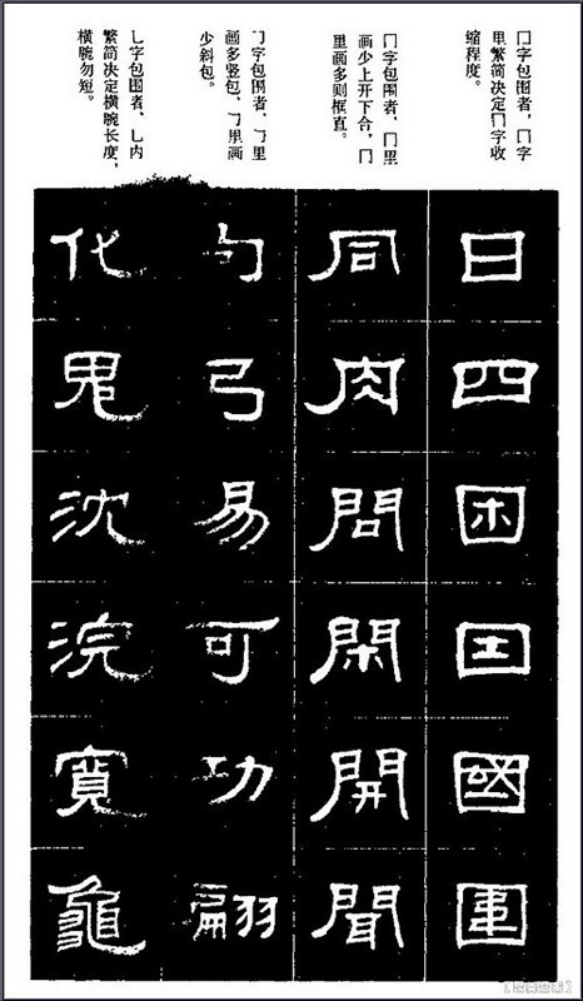 囗字包围者，囗字
里繁简决定囗字收
缩程度。
冂字包围者，冂里
画少上开下合，冂
里画多则框直。
㇆字包围者，㇆里
画多竖包，㇆里画
少斜包。
乚字包围者，乚内
繁简决定横腕长度，
横腕勿短。
日四困國
同肉問閑開聞
勺弓易可功翩
化鬼沈浣寬龜